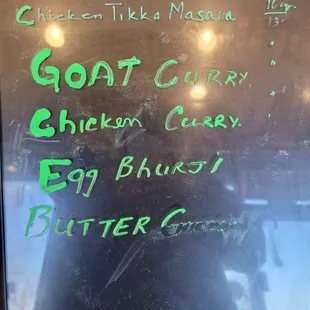 Chicken Tikka Masala 16oz.
13.
GOAT CURRY "
Chicken CURRY. "
Egg BHURJI
BUTTER